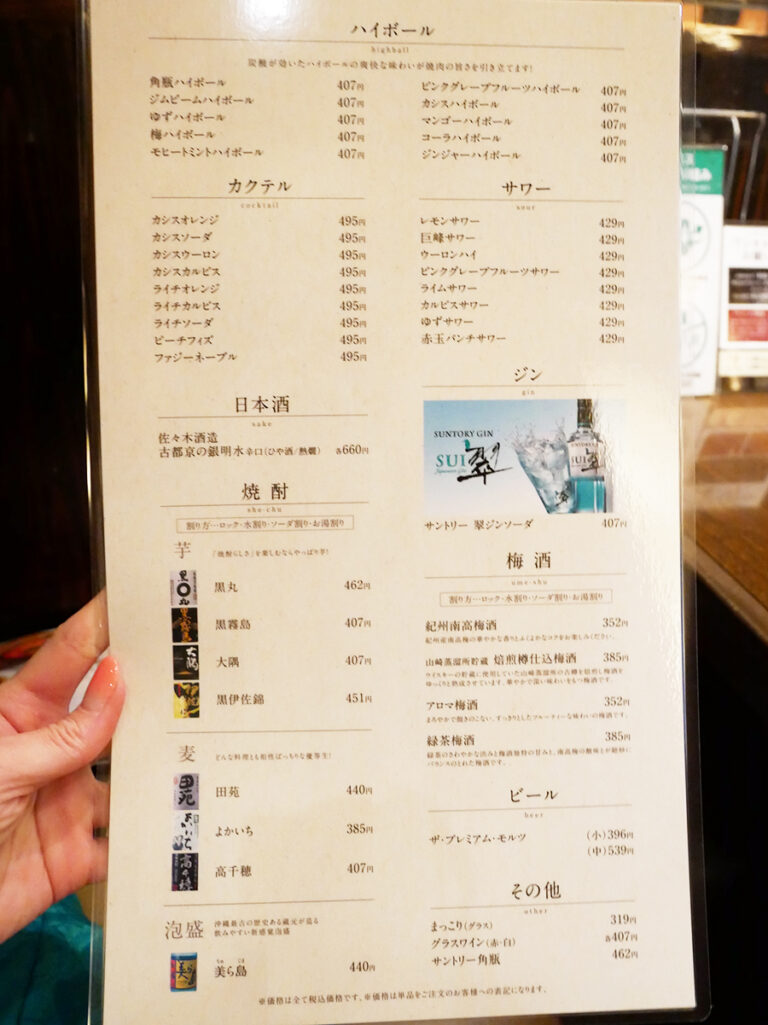 ハイボール
highball
炭酸が効いたハイボールの爽快な味わいが焼肉の旨さを引き立てます!
角瓶ハイボール 407円
ジムビームハイボール 407円
ゆずハイボール 407円
梅ハイボール 407円
モヒートミントハイボール 407円
ピンクグレープフルーツハイボール 407円
カシスハイボール 407円
マンゴーハイボール 407円
コーラハイボール 407円
ジンジャーハイボール 407円
カクテル
cocktail
カシスオレンジ 495円
カシスソーダ 495円
カシスウーロン 495円
カシスカルピス 495円
ライチオレンジ 495円
ライチカルピス 495円
ライチソーダ 495円
ピーチフィズ 495円
ファジーネーブル 495円
サワー
sour
レモンサワー 429円
巨峰サワー 429円
ウーロンハイ 429円
ピンクグレープフルーツサワー 429円
ライムサワー 429円
カルピスサワー 429円
ゆずサワー 429円
赤玉パンチサワー 429円
日本酒
sake
佐々木酒造
古都京の銀明水 辛口(ひや酒/熱燗) 各660円
焼酎
sho-chu
割り方…ロック・水割り・ソーダ割り・お湯割り
芋
「焼酎らしさ」を楽しむならやっぱり芋!
黒丸 462円
黒霧島 407円
大隅 407円
黒伊佐錦 451円
麦
どんな料理とも相性ばっちりな優等生!
田苑 440円
よかいち 385円
高千穂 407円
泡盛
沖縄最古の歴史ある蔵元が造る
飲みやすい新感覚泡盛
美ら島 440円
ジン
gin
SUNTORY GIN
SUI 翠
サントリー 翠ジンソーダ 407円
梅酒
ume-shu
割り方…ロック・水割り・ソーダ割り・お湯割り
紀州南高梅酒 352円
紀州産南高梅の華やかな香りとふくよかなコクをお楽しみください。
山崎蒸溜所貯蔵 焙煎樽仕込梅酒 385円
ウイスキーの貯蔵に使用していた山崎蒸溜所の古樽を焙煎し梅酒を
ゆっくりと熟成させています。華やかで深い味わいをもつ梅酒です。
アロマ梅酒 352円
まろやかで飽きのこない、すっきりとしたフルーティーな味わいの梅酒です。
緑茶梅酒 385円
緑茶のさわやかな渋みと梅酒独特の甘みと、南高梅の酸味とが絶妙に
バランスのとれた梅酒です。
ビール
beer
ザ・プレミアム・モルツ (小)396円
(中)539円
その他
other
まっこり(グラス) 319円
グラスワイン(赤・白) 各407円
サントリー角瓶 462円
※価格は全て税込価格です。※価格は単品をご注文のお客様への表記になります。